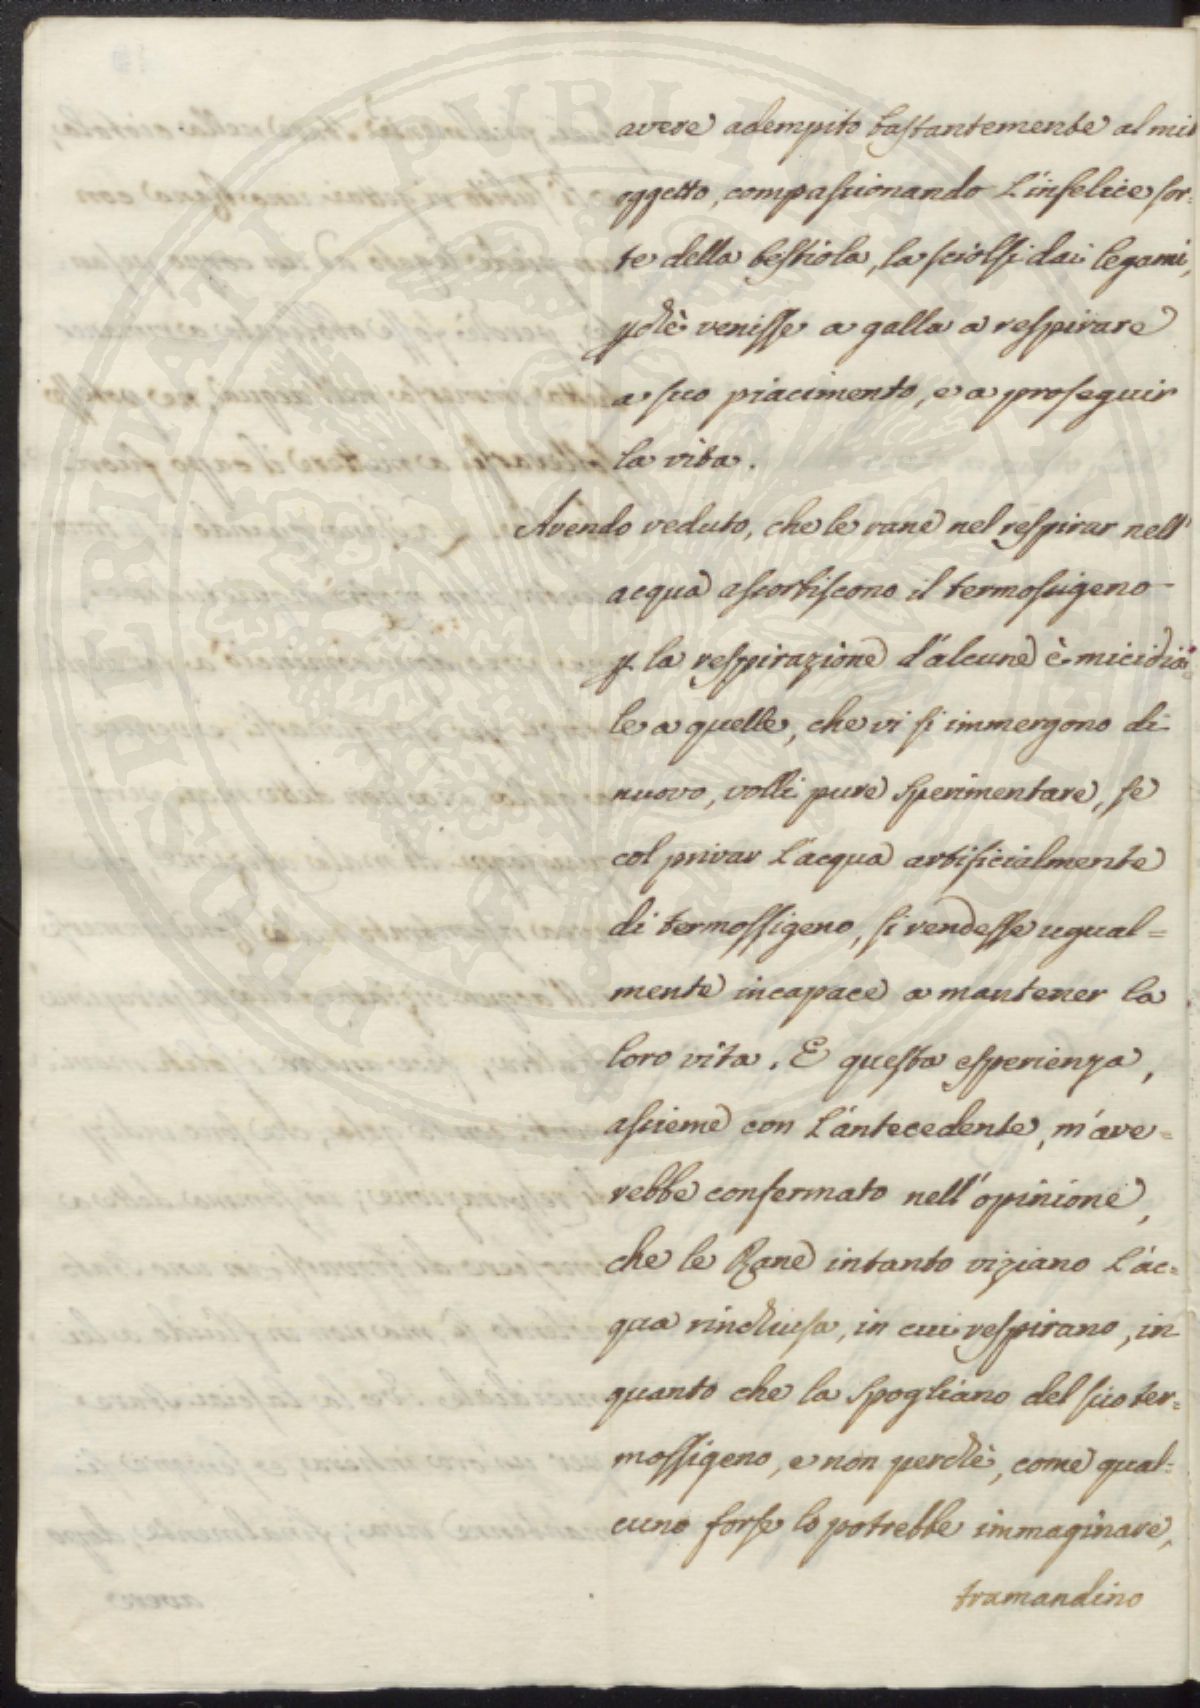 avere adempito bastantemente al mio
oggetto, compassionando l'infelice sor=
te della bestiola, la sciolsi dai legami,
pchè venisse a galla a respirare
a suo piacimento, e a proseguir
la vita.
Avendo veduto, che le rane nel respirar nell'
acqua assorbiscono il termossigeno
p la respirazione d'alcune è micidia=
le a quelle, che vi si immergono di
nuovo, volli pure sperimentare, se
col privar l'acqua artificialmente
di termossigeno, si rendesse ugual=
mente incapace a mantener la
loro vita. E questa esperienza,
assieme con l'antecedente, m'ave=
rebbe confermato nell'opinione,
che le Rane intanto viziano l'ac=
qua rinchiusa, in cui respirano, in
quanto che la spogliano del suo ter=
mossigeno, e non perchè, come qual=
cuno forse lo potrebbe immaginare,
tramandino